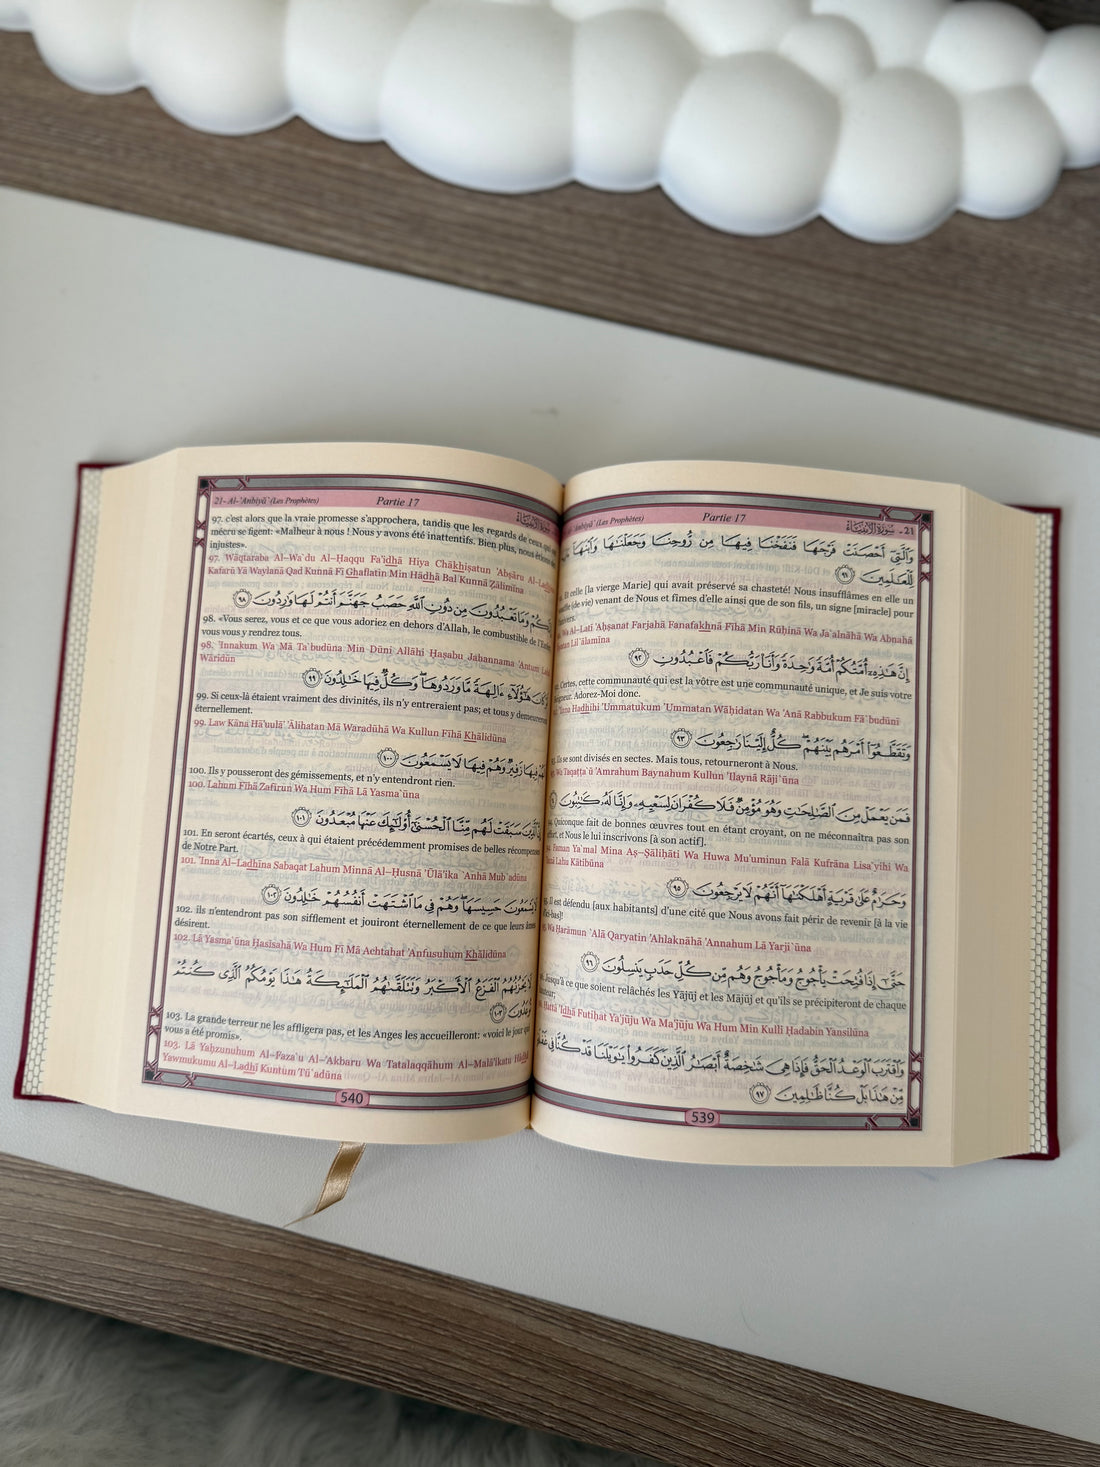 (Les Prophètes) Partie 17 سورة الأنبياء - 21
وَالَّتِي أَحْصَنَتْ فَرْجَهَا فَنَفَخْنَا فِيهَا مِن رُّوحِنَا وَجَعَلْنَاهَا وَابْنَهَا
لِّلْعَالَمِينَ ٩١
Et celle [la vierge Marie] qui avait préservé sa chasteté! Nous insufflâmes en elle un
souffle (de vie) venant de Nous et fîmes d'elle ainsi que de son fils, un signe [miracle] pour
Wa Al–Latī 'Aḥṣanat Farjahā Fanafakhnā Fīhā Min Rūḥinā Wa Ja`alnāhā Wa Abnahā
Lil`ālamīna
إِنَّ هَٰذِهِ أُمَّتُكُمْ أُمَّةً وَاحِدَةً وَأَنَا رَبُّكُمْ فَاعْبُدُونِ ٩٢
Certes, cette communauté qui est la vôtre est une communauté unique, et Je suis votre
Seigneur. Adorez-Moi donc.
'Inna Hadhihi 'Ummatukum 'Ummatan Wāḥidatan Wa 'Anā Rabbukum Fā`budūni
وَتَقَطَّعُوا أَمْرَهُم بَيْنَهُمْ كُلٌّ إِلَيْنَا رَاجِعُونَ ٩٣
Ils se sont divisés en sectes. Mais tous, retourneront à Nous.
Wa Taqaṭṭa`ū 'Amrahum Baynahum Kullun 'Ilaynā Rāji`ūna
فَمَن يَعْمَلْ مِنَ الصَّالِحَاتِ وَهُوَ مُؤْمِنٌ فَلَا كُفْرَانَ لِسَعْيِهِ وَإِنَّا لَهُ كَاتِبُونَ
94. Quiconque fait de bonnes œuvres tout en étant croyant, on ne méconnaîtra pas son
effort, et Nous le lui inscrivons [à son actif].
94. Faman Ya`mal Mina Aş–Şāliḥāti Wa Huwa Mu'uminun Falā Kufrāna Lisa`yihi Wa
'Innā Lahu Kātibūna
وَحَرَامٌ عَلَىٰ قَرْيَةٍ أَهْلَكْنَاهَا أَنَّهُمْ لَا يَرْجِعُونَ ٩٥
Il est défendu [aux habitants] d'une cité que Nous avons fait périr de revenir [à la vie
ci-bas]!
Wa Ḥarāmun `Alá Qaryatin 'Ahlaknāhā 'Annahum Lā Yarji`ūna
حَتَّىٰ إِذَا فُتِحَتْ يَأْجُوجُ وَمَأْجُوجُ وَهُم مِّن كُلِّ حَدَبٍ يَنسِلُونَ ٩٦
Jusqu'à ce que soient relâchés les Yājūj et les Mājūj et qu'ils se précipiteront de chaque
Ḥattá 'Idhā Futiḥat Ya'jūju Wa Ma'jūju Wa Hum Min Kulli Ḥadabin Yansilūna
وَاقْتَرَبَ الْوَعْدُ الْحَقُّ فَإِذَا هِيَ شَاخِصَةٌ أَبْصَارُ الَّذِينَ كَفَرُوا يَا وَيْلَنَا قَدْ كُنَّا فِي
مِّنْ هَٰذَا بَلْ كُنَّا ظَالِمِينَ ٩٧
539
21- Al-'Anbiyā' (Les Prophètes) Partie 17 سورة الأنبياء
97. c'est alors que la vraie promesse s'approchera, tandis que les regards de ceux qui ont
mécru se figent: «Malheur à nous ! Nous y avons été inattentifs. Bien plus, nous étions des
injustes».
97. Wāqtaraba Al–Wa`du Al–Ḥaqqu Fa'idhā Hiya Chākhişatun 'Abşāru Al–Ladhīna
Kafarū Yā Waylanā Qad Kunnā Fī Ghaflatin Min Hādhā Bal Kunnā Žālimīna
وَمَا تَعْبُدُونَ مِن دُونِ اللَّهِ حَصَبُ جَهَنَّمَ أَنتُمْ لَهَا وَارِدُونَ ٩٨
98. «Vous serez, vous et ce que vous adoriez en dehors d'Allah, le combustible de l'Enfer,
vous vous y rendrez tous.
98. 'Innakum Wa Mā Ta`budūna Min Dūni Allāhi Ḥaşabu Jahannama 'Antum Lahā
Wāridūn
كَانَ هَٰؤُلَاءِ آلِهَةً مَّا وَرَدُوهَا وَكُلٌّ فِيهَا خَالِدُونَ ٩٩
99. Si ceux-là étaient vraiment des divinités, ils n'y entreraient pas; et tous y demeureront
éternellement.
99. Law Kāna Hā'uulā' 'Ālihatan Mā Waradūhā Wa Kullun Fīhā Khālidūna
لَهُمْ فِيهَا زَفِيرٌ وَهُمْ فِيهَا لَا يَسْمَعُونَ ١٠٠
100. Ils y pousseront des gémissements, et n'y entendront rien.
100. Lahum Fīhā Zafīrun Wa Hum Fīhā Lā Yasma`ūna
الَّذِينَ سَبَقَتْ لَهُم مِّنَّا الْحُسْنَىٰ أُولَٰئِكَ عَنْهَا مُبْعَدُونَ ١٠١
101. En seront écartés, ceux à qui étaient précédemment promises de belles récompenses
de Notre Part.
101. 'Inna Al–Ladhīna Sabaqat Lahum Minnā Al–Ḥusná 'Ūlā'ika `Anhā Mub`adūna
يَسْمَعُونَ حَسِيسَهَا وَهُمْ فِي مَا اشْتَهَتْ أَنفُسُهُمْ خَالِدُونَ ١٠٢
102. ils n'entendront pas son sifflement et jouiront éternellement de ce que leurs âmes
désirent.
102. Lā Yasma`ūna Ḥasīsahā Wa Hum Fī Mā Achtahat 'Anfusuhum Khālidūna
يَحْزُنُهُمُ الْفَزَعُ الْأَكْبَرُ وَتَتَلَقَّاهُمُ الْمَلَائِكَةُ هَٰذَا يَوْمُكُمُ الَّذِي كُنتُمْ
تُوعَدُونَ ١٠٣
103. La grande terreur ne les affligera pas, et les Anges les accueilleront: «voici le jour qui
vous a été promis».
103. Lā Yaḥzunuhum Al–Faza`u Al–'Akbaru Wa Tatalaqqāhum Al–Malā'ikatu Hādhā
Yawmukumu Al–Ladhī Kuntum Tū`adūna
540